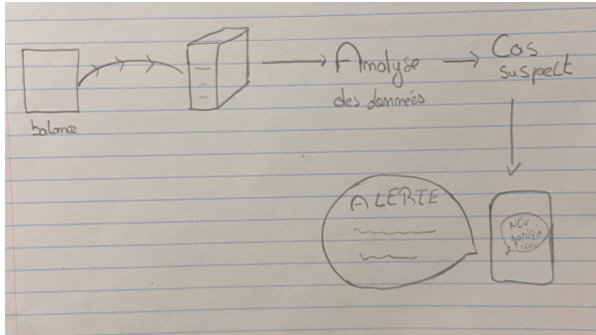 balance
Analyse
des données
Cas
suspect
ALERTE
NEW